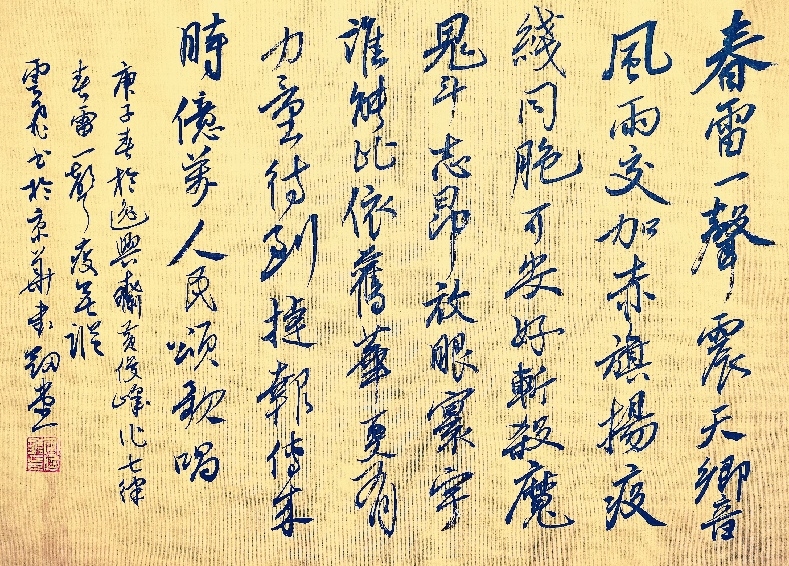 春雷一聲震天響
風雨交加赤旗揚疫
綫同胞可安好斬殺魔
鬼斗志昂放眼寰宇
誰能比依舊華夏有
力量待到捷報傳來
時億萬人民頌歌唱
庚子春於逸興齋黄俊峰作七律
春雷一聲疫無蹤
雲飛書於京華